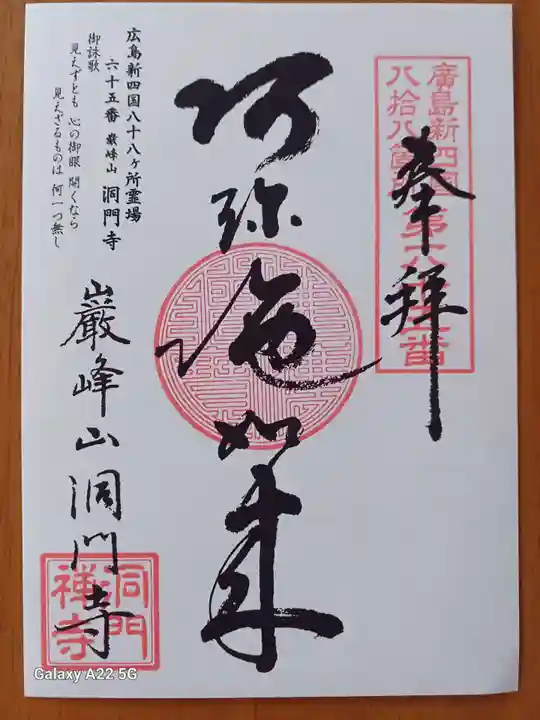 廣島新四国
八拾八箇所
第六十五番
奉拝
阿弥陀如来
広島新四国八十八ヶ所霊場
六十五番 巌峰山 洞門寺
御詠歌
見えずとも 心の御眼 開くなら
見えざるものは 何一つ無し
巌峰山洞門寺
洞門
禅寺
Galaxy A22 5G